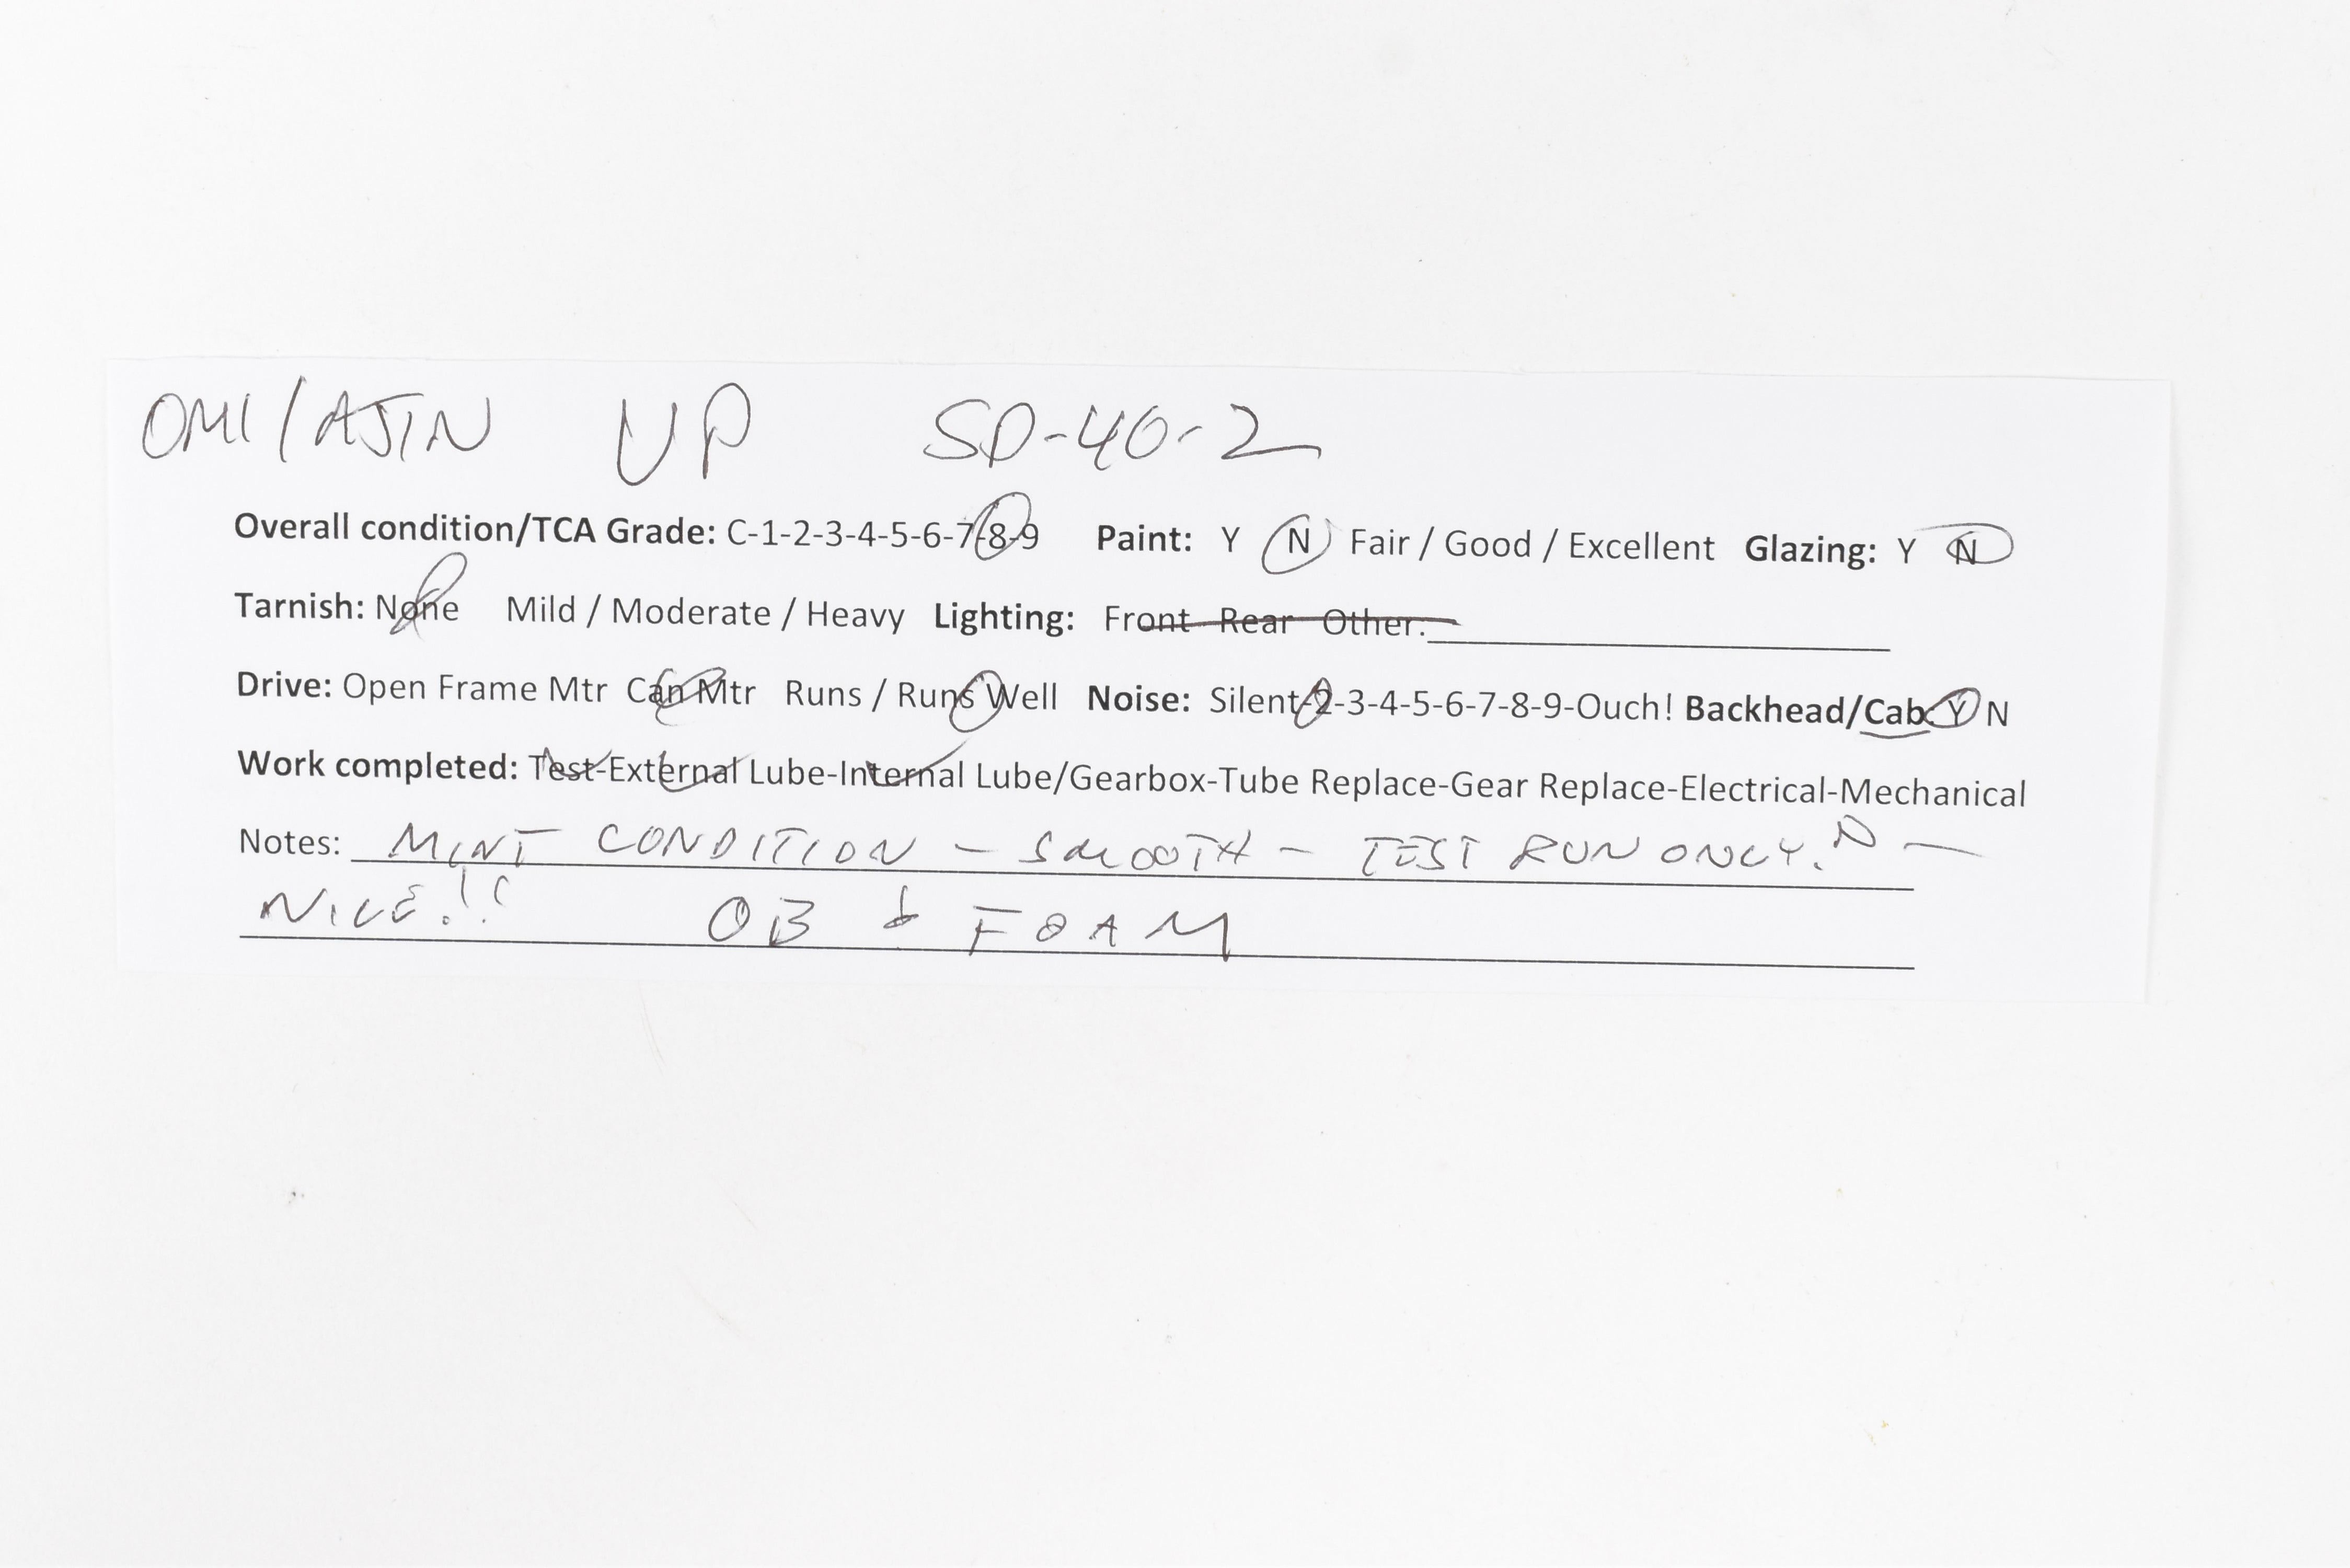 OMI/AJIN UP SD-40-2
Overall condition/TCA Grade: C-1-2-3-4-5-6-7-8-9 Paint: Y N Fair / Good / Excellent Glazing: Y N
Tarnish: None Mild / Moderate / Heavy Lighting: Front Rear Other:
Drive: Open Frame Mtr Can Mtr Runs / Runs Well Noise: Silent-2-3-4-5-6-7-8-9-Ouch! Backhead/Cab: Y N
Work completed: Test-External Lube-Internal Lube/Gearbox-Tube Replace-Gear Replace-Electrical-Mechanical
Notes: MINT CONDITION - SMOOTH - TEST RUN ONLY. -
NICE!! OB & FOAM